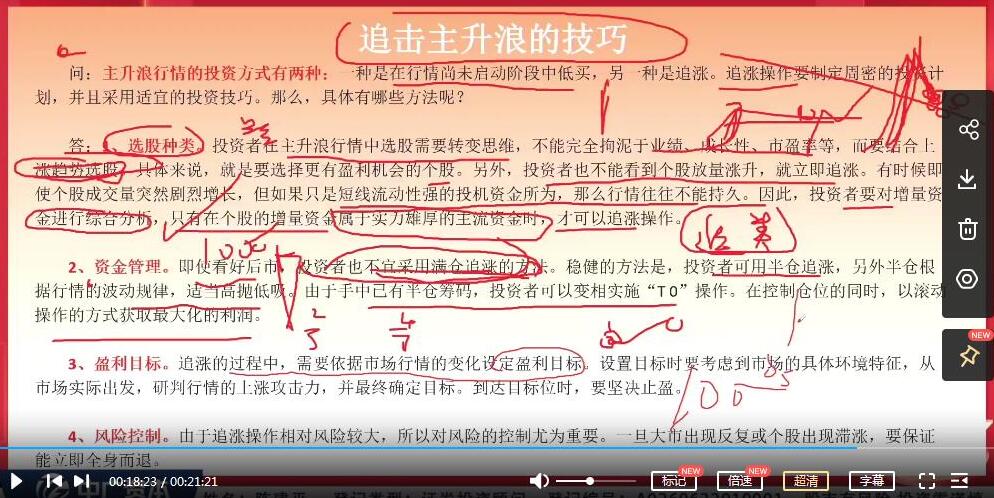 追击主升浪的技巧
问：主升浪行情的投资方式有两种：一种是在行情尚未启动阶段中低买，另一种是追涨。追涨操作要制定周密的投资计
划，并且采用适宜的投资技巧。那么，具体有哪些方法呢？
答：1、选股种类。投资者在主升浪行情中选股需要转变思维，不能完全拘泥于业绩、成长性、市盈率等，而要结合上
涨趋势选股。具体来说，就是要选择更有盈利机会的个股。另外，投资者也不能看到个股放量涨升，就立即追涨。有时候即
使个股成交量突然剧烈增长，但如果只是短线流动性强的投机资金所为，那么行情往往不能持久。因此，投资者要对增量资
金进行综合分析，只有在个股的增量资金属于实力雄厚的主流资金时，才可以追涨操作。
1000
2、资金管理。即使看好后市，投资者也不宜采用满仓追涨的方法。稳健的方法是，投资者可用半仓追涨，另外半仓根
据行情的波动规律，适当高抛低吸。由于手中已有半仓筹码，投资者可以变相实施“TO”操作。在控制仓位的同时，以滚动
操作的方式获取最大化的利润。
3、盈利目标。追涨的过程中，需要依据市场行情的变化设定盈利目标。设置目标时要考虑到市场的具体环境特征，从
市场实际出发，研判行情的上涨攻击力，并最终确定目标。到达目标位时，要坚决止盈。
4、风险控制。由于追涨操作相对风险较大，所以对风险的控制尤为重要。一旦大市出现反复或个股出现滞涨，要保证
能立即全身而退。
NEW
00:18:23 / 00:21:21
标记 NEW
倍速 NEW
超清
字幕